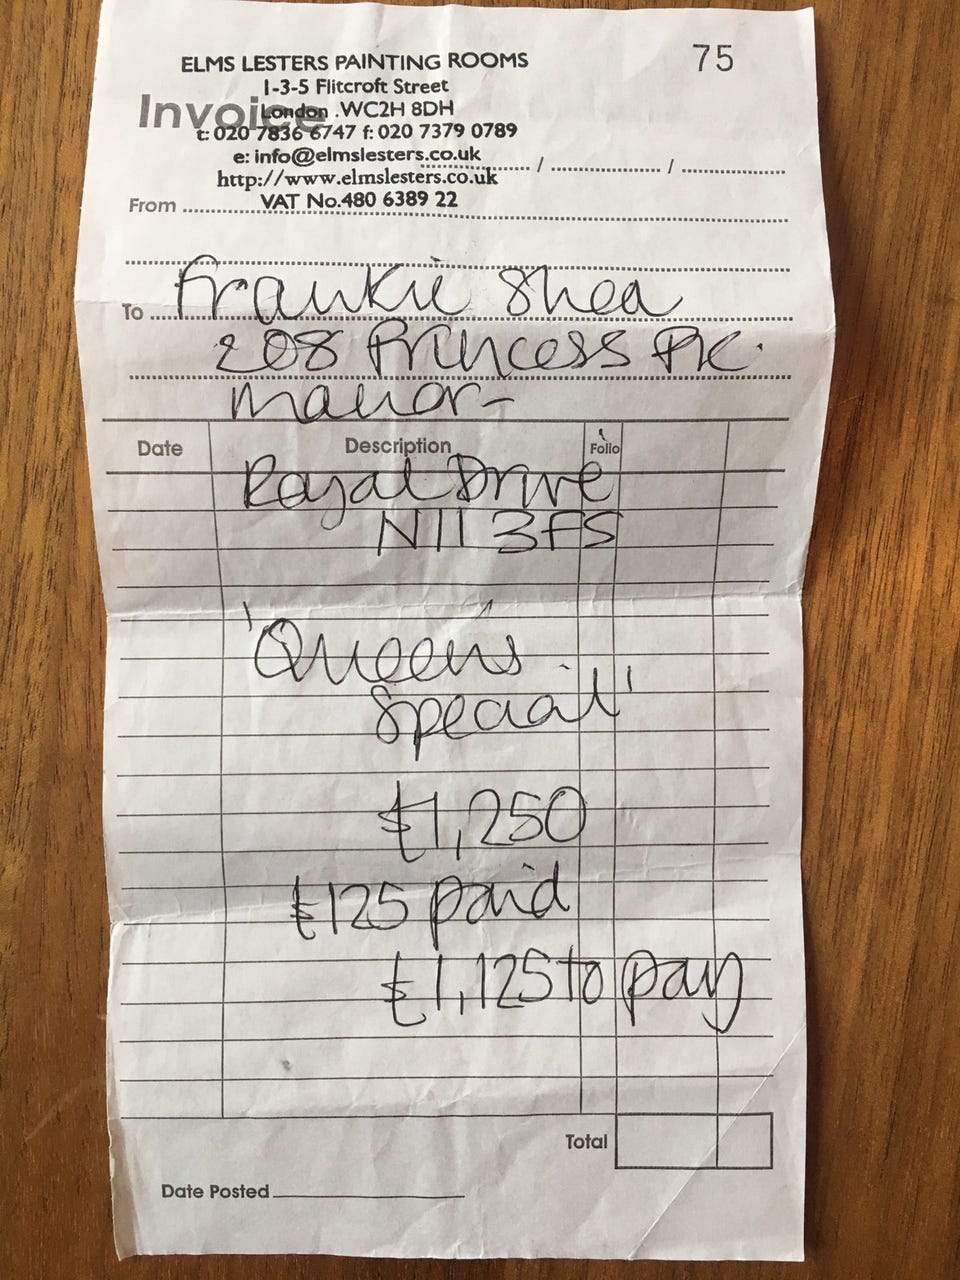 75
ELMS LESTERS PAINTING ROOMS
1-3-5 Flitcroft Street
Invoice
London .WC2H 8DH
t: 020 7836 6747 f: 020 7379 0789
e: info@elmslesters.co.uk
/ /
http://www.elmslesters.co.uk
VAT No.480 6389 22
From
To Frankie Shea
208 Princess Pk.
Manor-
Date Description Folio
Royal Drive
N11 3FS
'Queens
Special'
£1,250
£125 paid
£1,125 to pay
Total
Date Posted